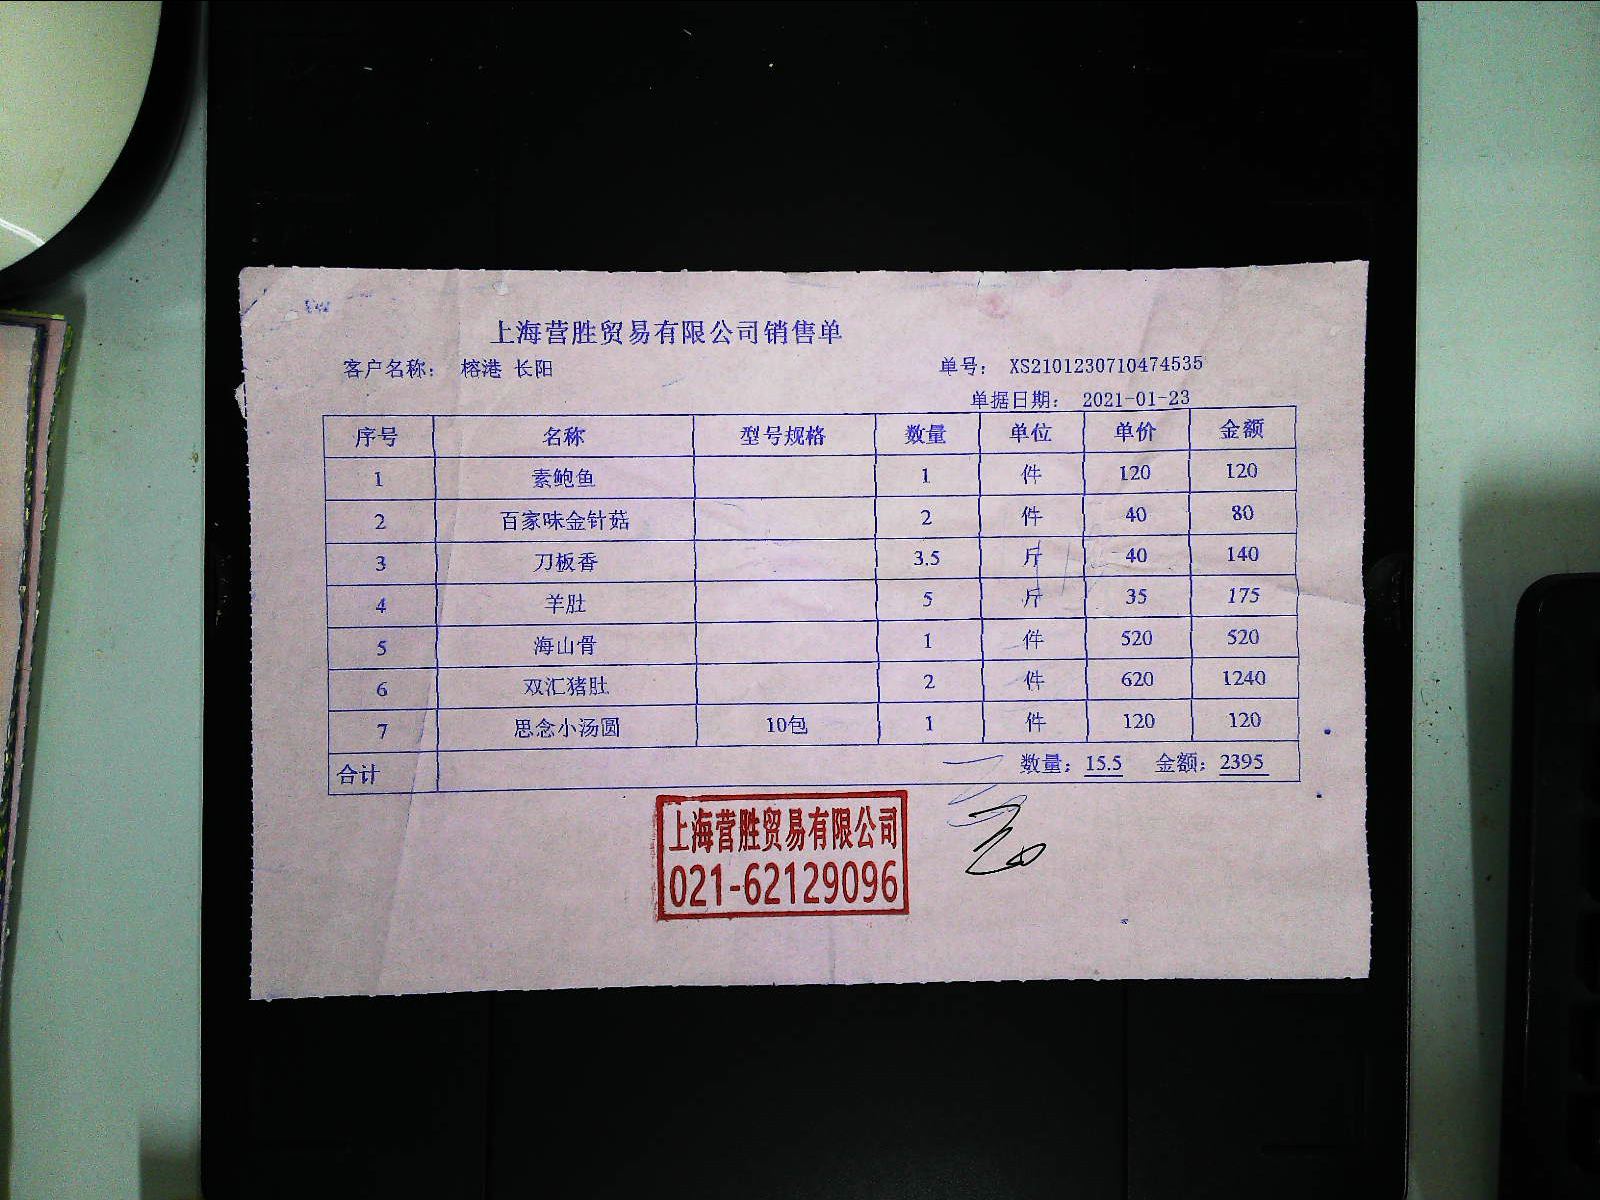 上海营胜贸易有限公司销售单
客户名称： 榕港 长阳 单号： XS2101230710474535
单据日期： 2021-01-23
序号 名称 型号规格 数量 单位 单价 金额
1 素鲍鱼 1 件 120 120
2 百家味金针菇 2 件 40 80
3 刀板香 3.5 斤 40 140
4 羊肚 5 斤 35 175
5 海山骨 1 件 520 520
6 双汇猪肚 2 件 620 1240
7 思念小汤圆 10包 1 件 120 120
合计 数量：15.5 金额：2395
上海营胜贸易有限公司
021-62129096